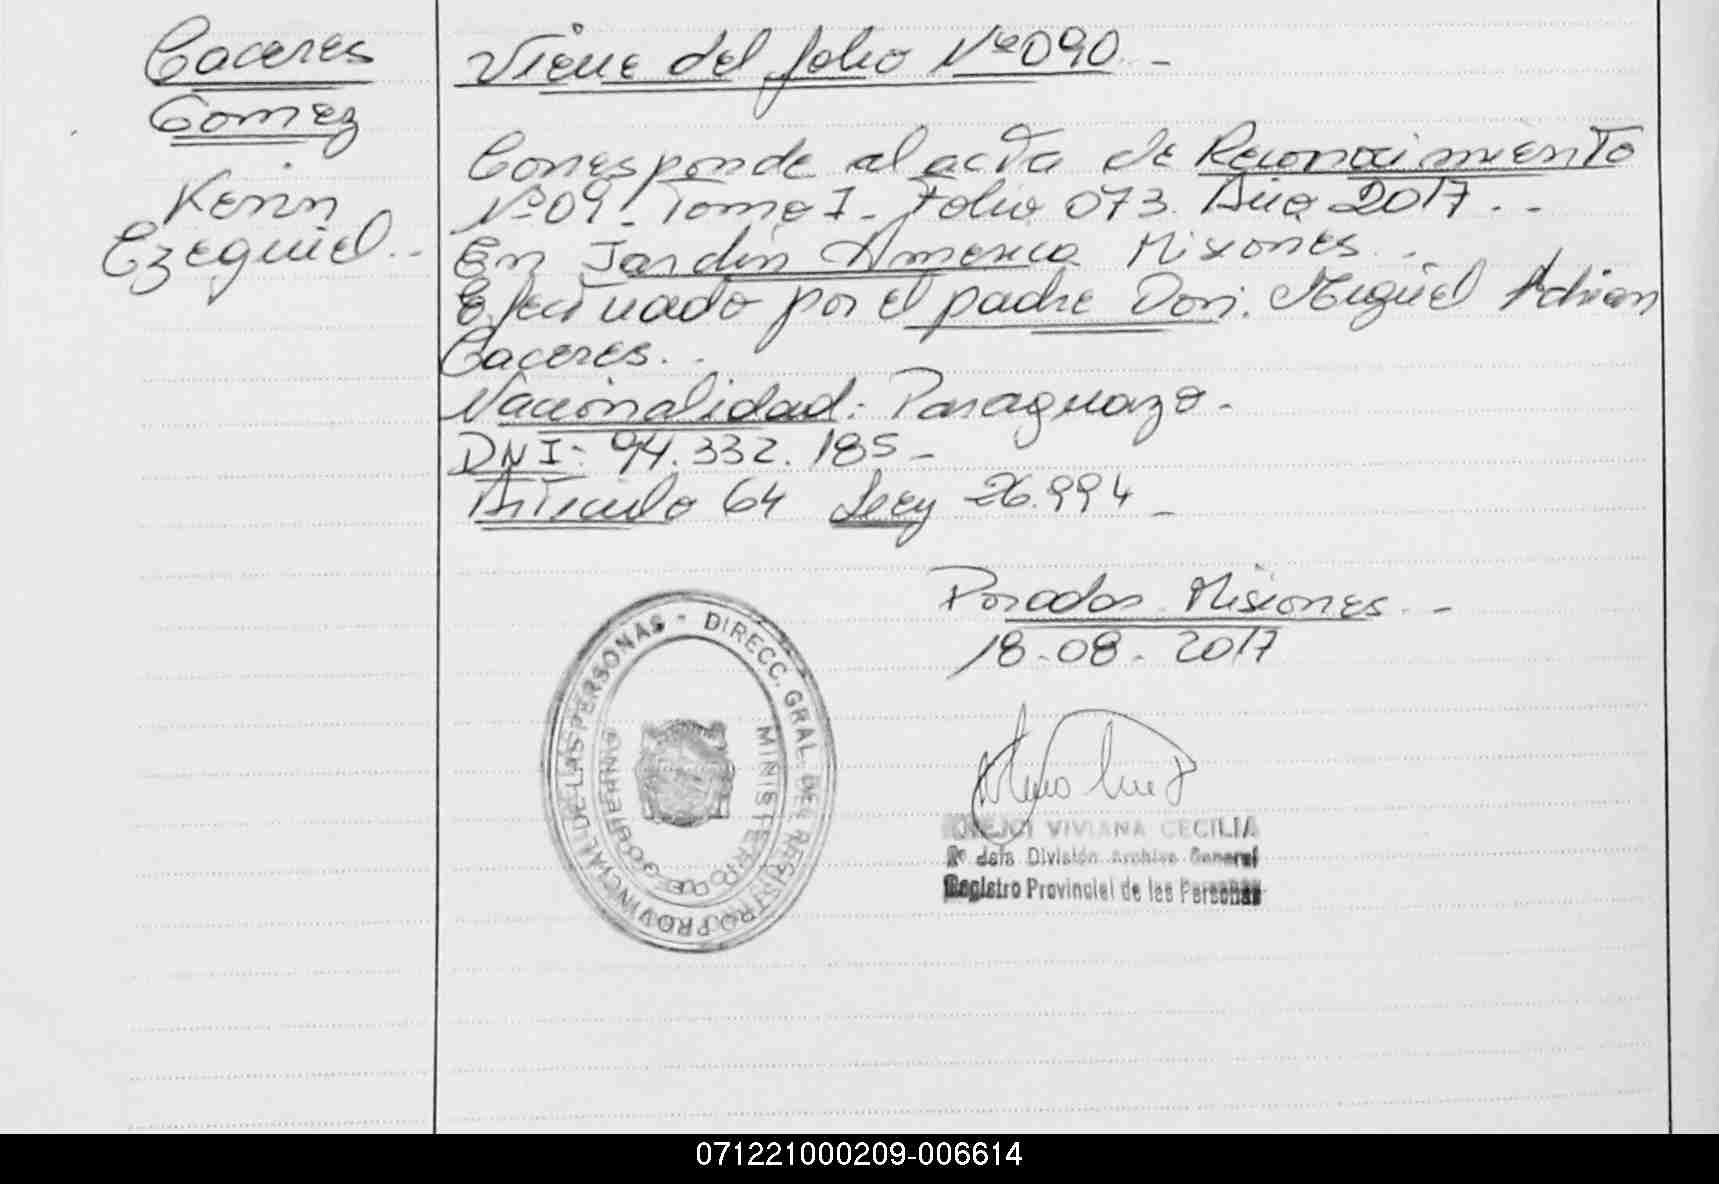 Caceres
Gomez
Kevin
Ezequiel..
Viene del folio Nº 090. -
Corresponde al acta de Reconocimiento
Nº 09. Tomo I - Folio 073. Año 2017. . -
En Jardin America Misiones. .
Efectuado por el padre Don. Miguel Adrian
Caceres. .
Nacionalidad: Paraguayo -
DNI: 94.332.185 -
Articulo 64 Ley 26.994 -
Posadas Misiones. -
18-08-2017
DIRECC. GRAL. DEL REGISTRO PROVINCIAL DE LAS PERSONAS -
MINISTERIO DE GOBIERNO
VIVIANA CECILIA
División Archivo General
Registro Provincial de las Personas
071221000209-006614